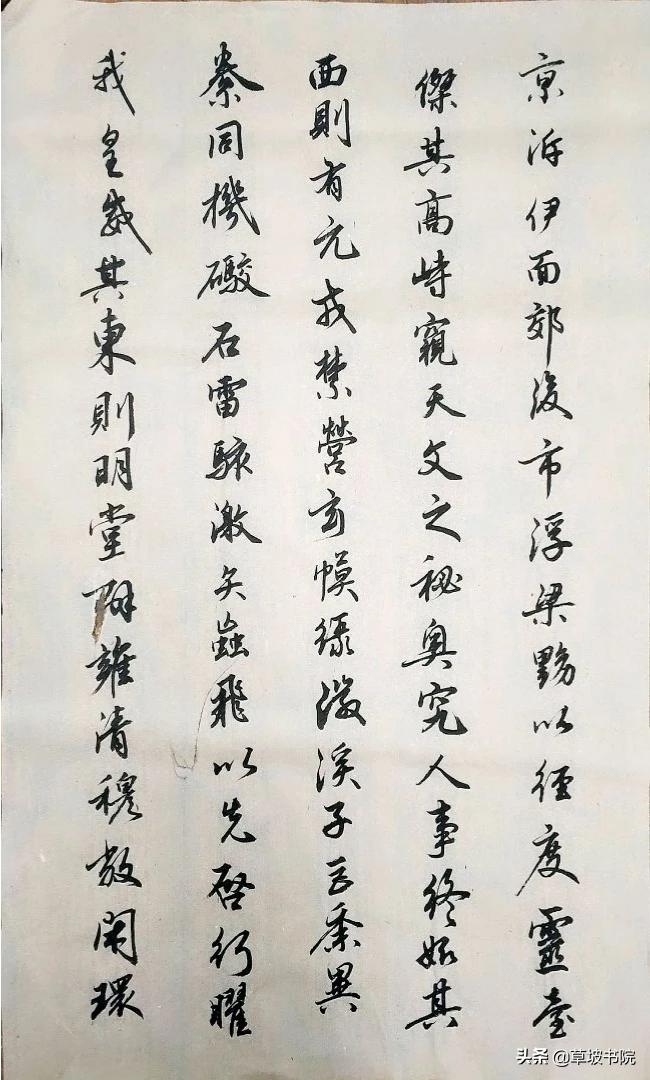 京泝伊面郊後市浮梁黝以徑度靈臺
傑其高峙窺天文之祕奥究人事終始其
西則有元戎禁營玄幙綠徽溪子巨黍異
絭同機礮石雷駭激矢蝱飛以先啓行曜
我皇威其東則明堂辟雍清穆敞閑環
头条 @草坡书院